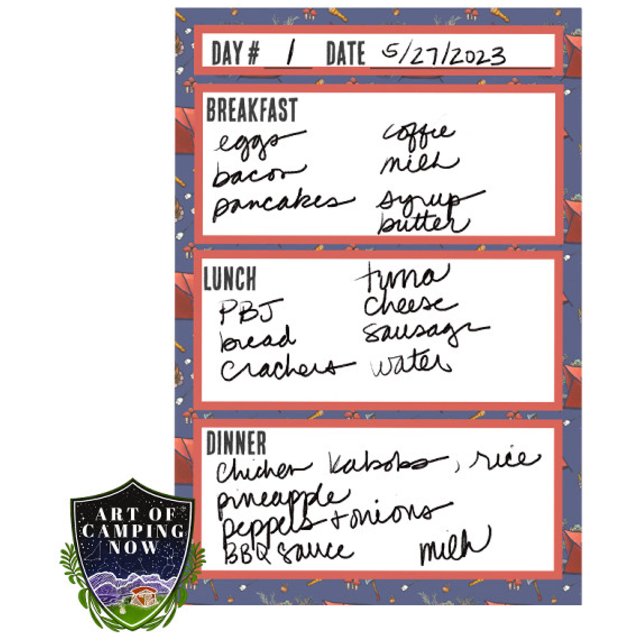 DAY # 1 DATE 5/27/2023
BREAKFAST
eggs coffie
bacon milk
pancakes syrup
butter
LUNCH tuna
PBJ cheese
bread sausage
crackers water
DINNER
chicken kabobs, rice
pineapple
peppers + onions
BBQ sauce milk
ART OF
CAMPING
NOW